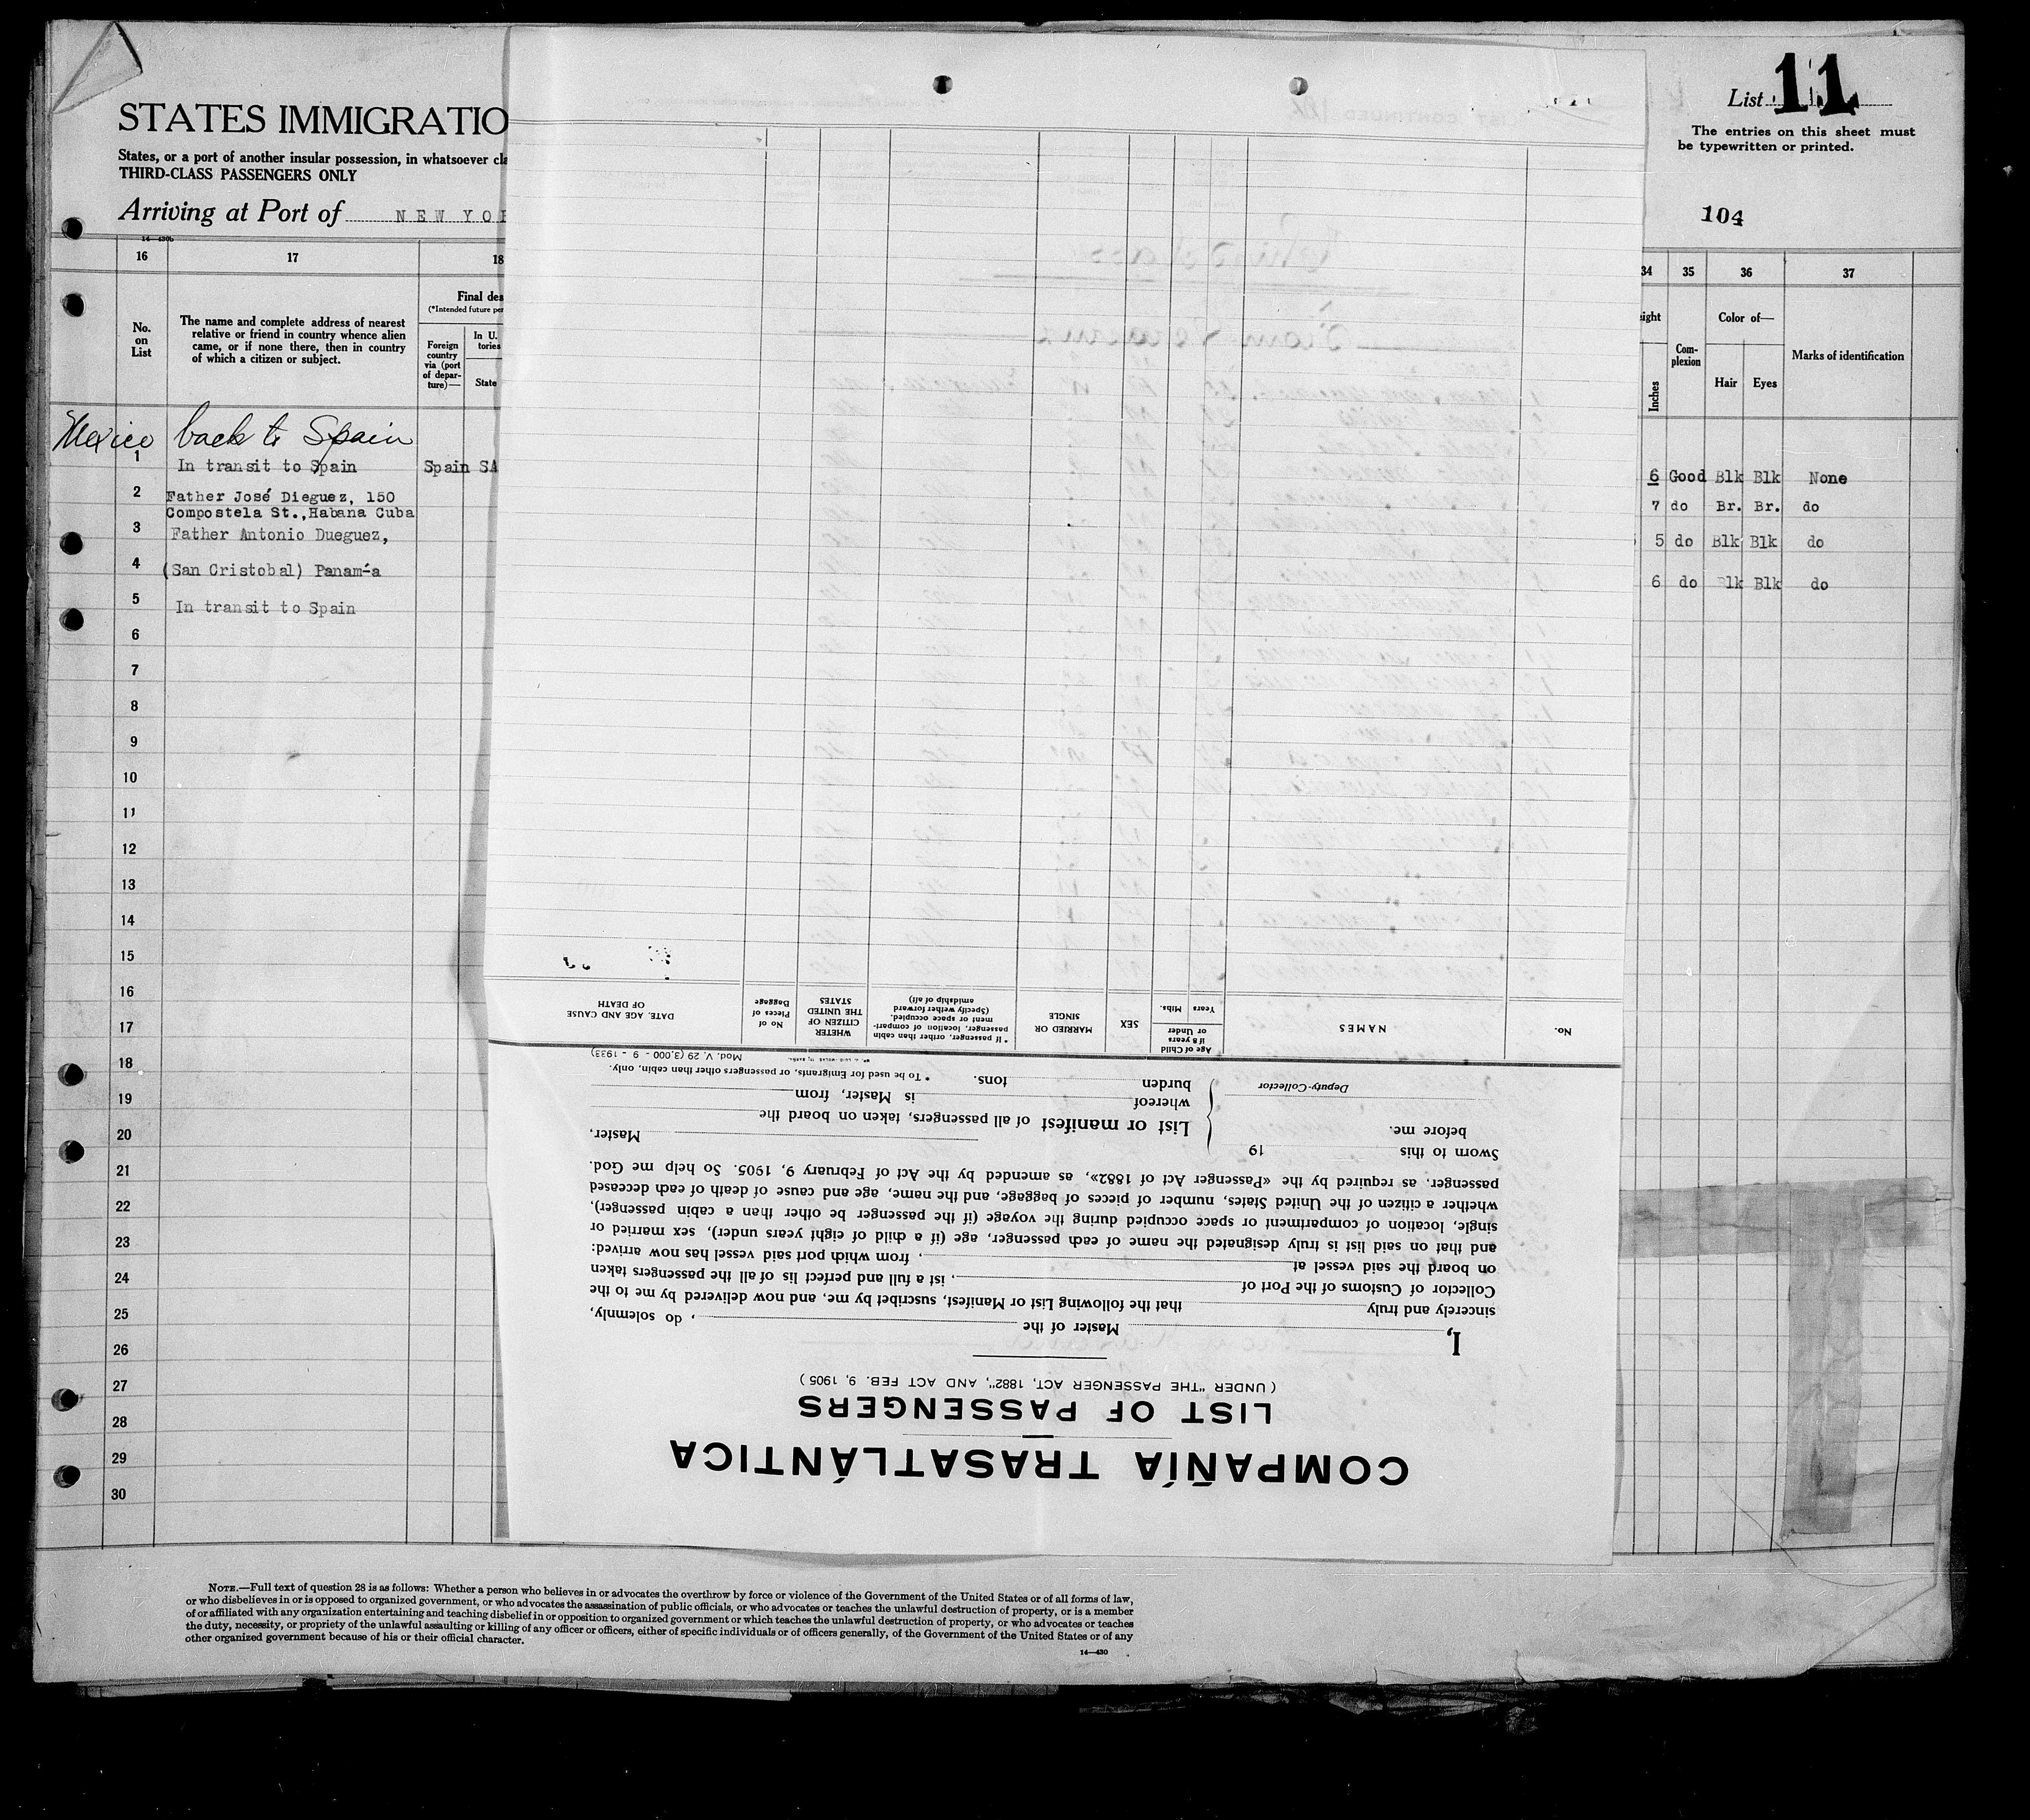 STATES IMMIGRATIO
States, or a port of another insular possession, in whatsoever cla
THIRD-CLASS PASSENGERS ONLY
Arriving at Port of NEW YOR
List 11
The entries on this sheet must
be typewritten or printed.
104
14—430b
16
17
18
34
35
36
37
No.
on
List
The name and complete address of nearest
relative or friend in country whence alien
came, or if none there, then in country
of which a citizen or subject.
Final des
(*Intended future per
Foreign
country
via (port
of depar-
ture)—
In U.
tories
State
eight
Inches
Com-
plexion
Color of—
Hair
Eyes
Marks of identification
Mexico back to Spain
1 In transit to Spain Spain SA 6 Good Blk Blk None
2 Father José Dieguez, 150
Compostela St.,Habana Cuba 7 do Br. Br. do
3 Father Antonio Dueguez, 5 do Blk Blk do
4 (San Cristobal) Panamá 6 do Blk Blk do
5 In transit to Spain
6
7
8
9
10
11
12
13
14
15
16
17
18
19
20
21
22
23
24
25
26
27
28
29
30
COMPAÑÍA TRASATLÁNTICA
LIST OF PASSENGERS
(UNDER "THE PASSENGER ACT, 1882", AND ACT FEB. 9, 1905)
I, Master of the , do solemnly,
sincerely and truly that the following List or Manifest, suscribet by me, and now delivered by me to the
Collector of Customs of the Port of , ist a full and perfect lis of all the passengers taken
on board the said vessel at , from which port said vessel has now arrived:
and that on said list is truly designated the name of each passenger, age (if a child of eight years under), sex married or
single, location of compartment or space occupied during the voyage (if the passenger be other than a cabin passenger),
whether a citizen of the United States, number of pieces of baggage, and the name, age and cause of death of each deceased
passenger, as required by the «Passenger Act of 1882», as amended by the Act of February 9, 1905. So help me God.
Sworn to this 19
before me.
Deputy-Collector
Master,
List or manifest of all passengers, taken on board the
whereof is Master, from
burden tons.
* To be used for Emigrants, or passengers other than cabin, only.
Mod. V. 29 (3,000 - 9 - 1933)
No.
NAMES
Age of Child
if 8 years
or Under
Years
Mths.
SEX
MARRIED OR
SINGLE
* If passenger, orther than cabin
passenger, location of compart-
ment or space occupied.
(Specify wether forward
amidship of aft)
WHETER
CITIZEN OF
THE UNITED
STATES
No of
Pieces of
Baggage
DATE. AGE AND CAUSE
OF DEATH
NOTE.—Full text of question 28 is as follows: Whether a person who believes in or advocates the overthrow by force or violence of the Government of the United States or of all forms of law,
or who disbelieves in or is opposed to organized government, or who advocates the assassination of public officials, or who advocates or teaches the unlawful destruction of property, or is a member
of or affiliated with any organization entertaining and teaching disbelief in or opposition to organized government or which teaches the unlawful destruction of property, or who advocates or teaches
the duty, necessity, or propriety of the unlawful assaulting or killing of any officer or officers, either of specific individuals or of officers generally, of the Government of the United States or of any
other organized government because of his or their official character.
14—430